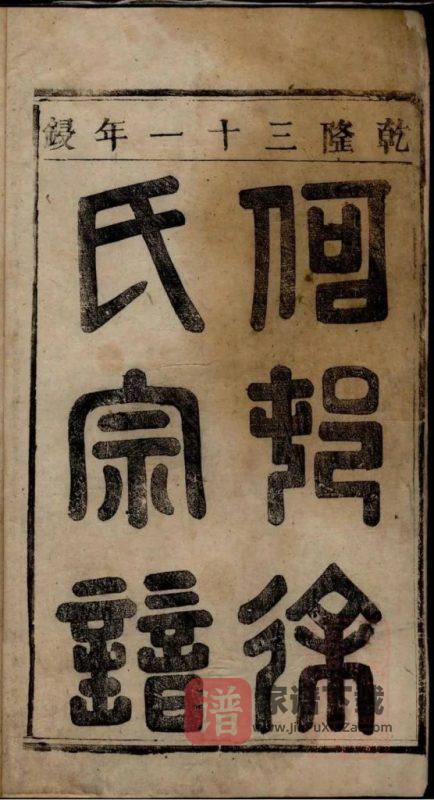 乾隆三十一年鋟
何邨徐
氏宗譜
谱 家谱下载
www.jiaPuXiaZai.com